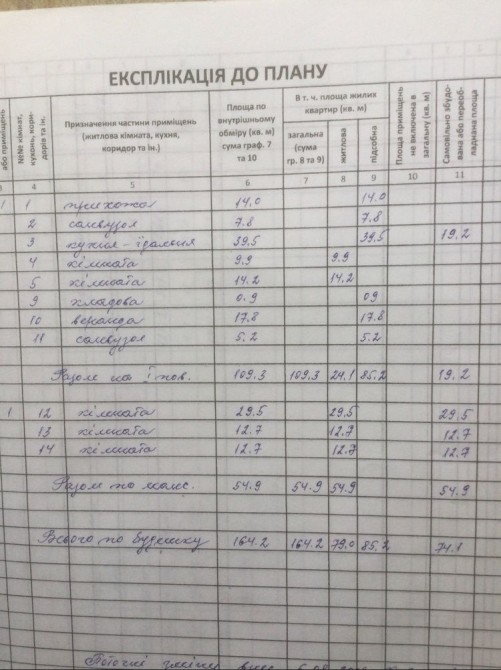 ЕКСПЛІКАЦІЯ ДО ПЛАНУ
або приміщень
№№ кімнат, кухонь, коридорів та ін.
Призначення частини приміщень (житлова кімната, кухня, коридор та ін.
Площа по внутрішньому обміру (кв. м) сума граф. 7 та 10
В т. ч. площа жилих квартир (кв. м)
загальна (сума гр. 8 та 9)
житлова
підсобна
Площа приміщень не включена в загальну (кв. м)
Самовільно збудована або переобладнана площа
3 4 5 6 7 8 9 10 11
1 1 прихожа 14.0 14.0
2 санвузол 7.8 7.8
3 кухня-їдальня 39,5 39,5 19,2
4 кімната 9.9 9.9
5 кімната 14.2 14,2
9 кладова 0.9 09
10 веранда 17.8 17.8
11 санвузол 5.2 5.2
Разом на І пов. 109.3 109.3 24.1 85.2 19.2
1 12 кімната 29.5 29.5 29.5
13 кімната 12.7 12.7 12.7
14 кімната 12.7 12.7 12.7
Разом по манс. 54.9 54.9 54.9 54.9
Всього по будинку 164.2 164.2 79.0 85.2 74.1
Поточні зміни